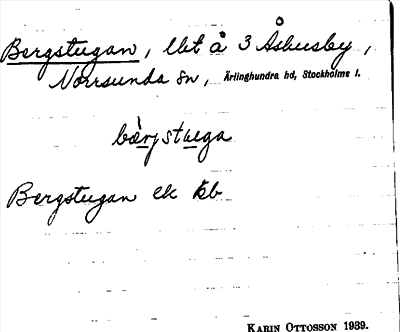 Bergstugan, lht å 3 Åshusby,
Norrsunda sn, Ärlinghundra hd, Stockholms l.
bærjstuga
Bergstugan ek kb
KARIN OTTOSSON 1939.